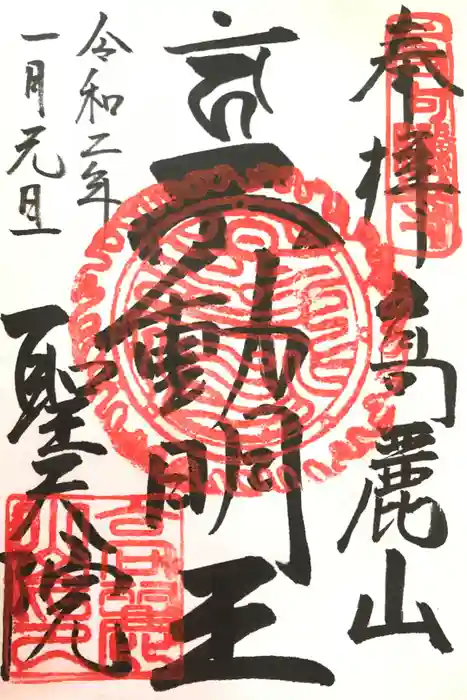 奉拝 高麗山
不動明王
令和二年
一月元旦
聖天院